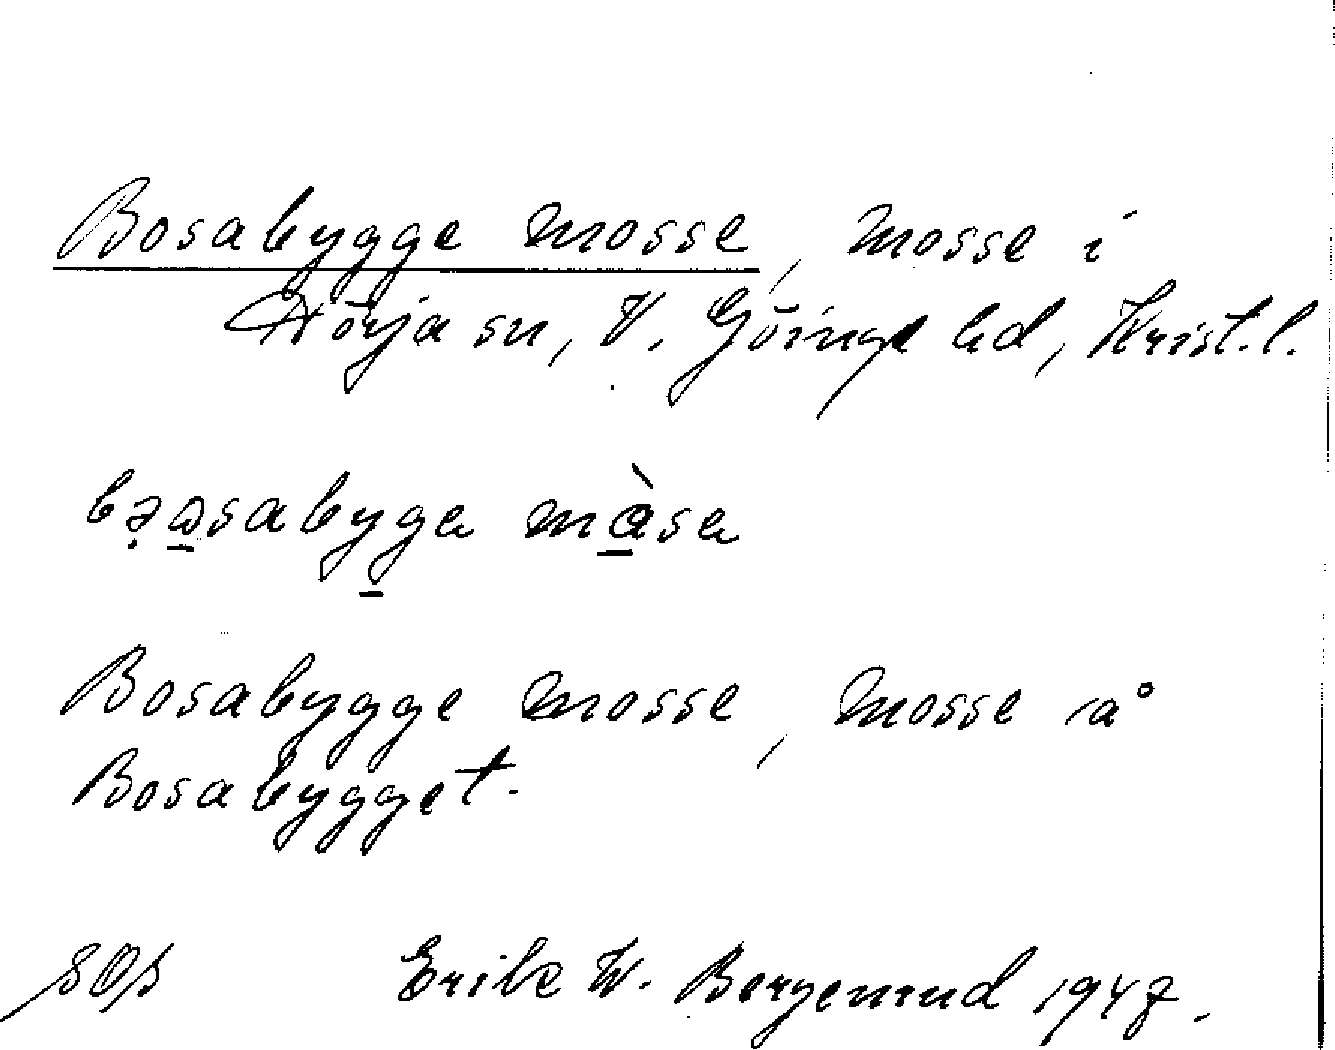 Bosabygge mosse, mosse i
Nörja sn, V. Göinge hd, Krist.l.
bəɷsabyga màsa
Bosabygge mosse, mosse å
Bosabygget.
SOs
Erik W. Bergenrud 1947.